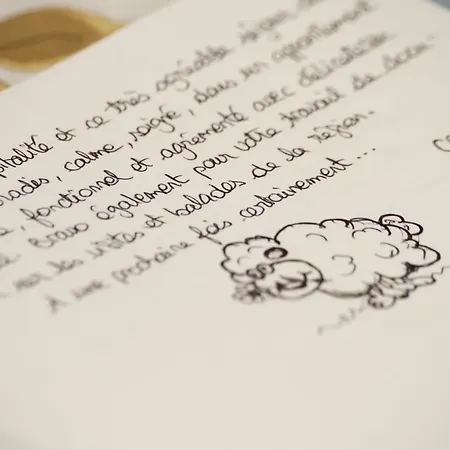 pitalité et ce très agréable séjour
radès, calme, soigné, dans un appartement
, fonctionnel et agrémenté avec délicatesse
. Bravo également pour votre travail de docu-
sur les visites et balades de la région.
A une prochaine fois certainement...